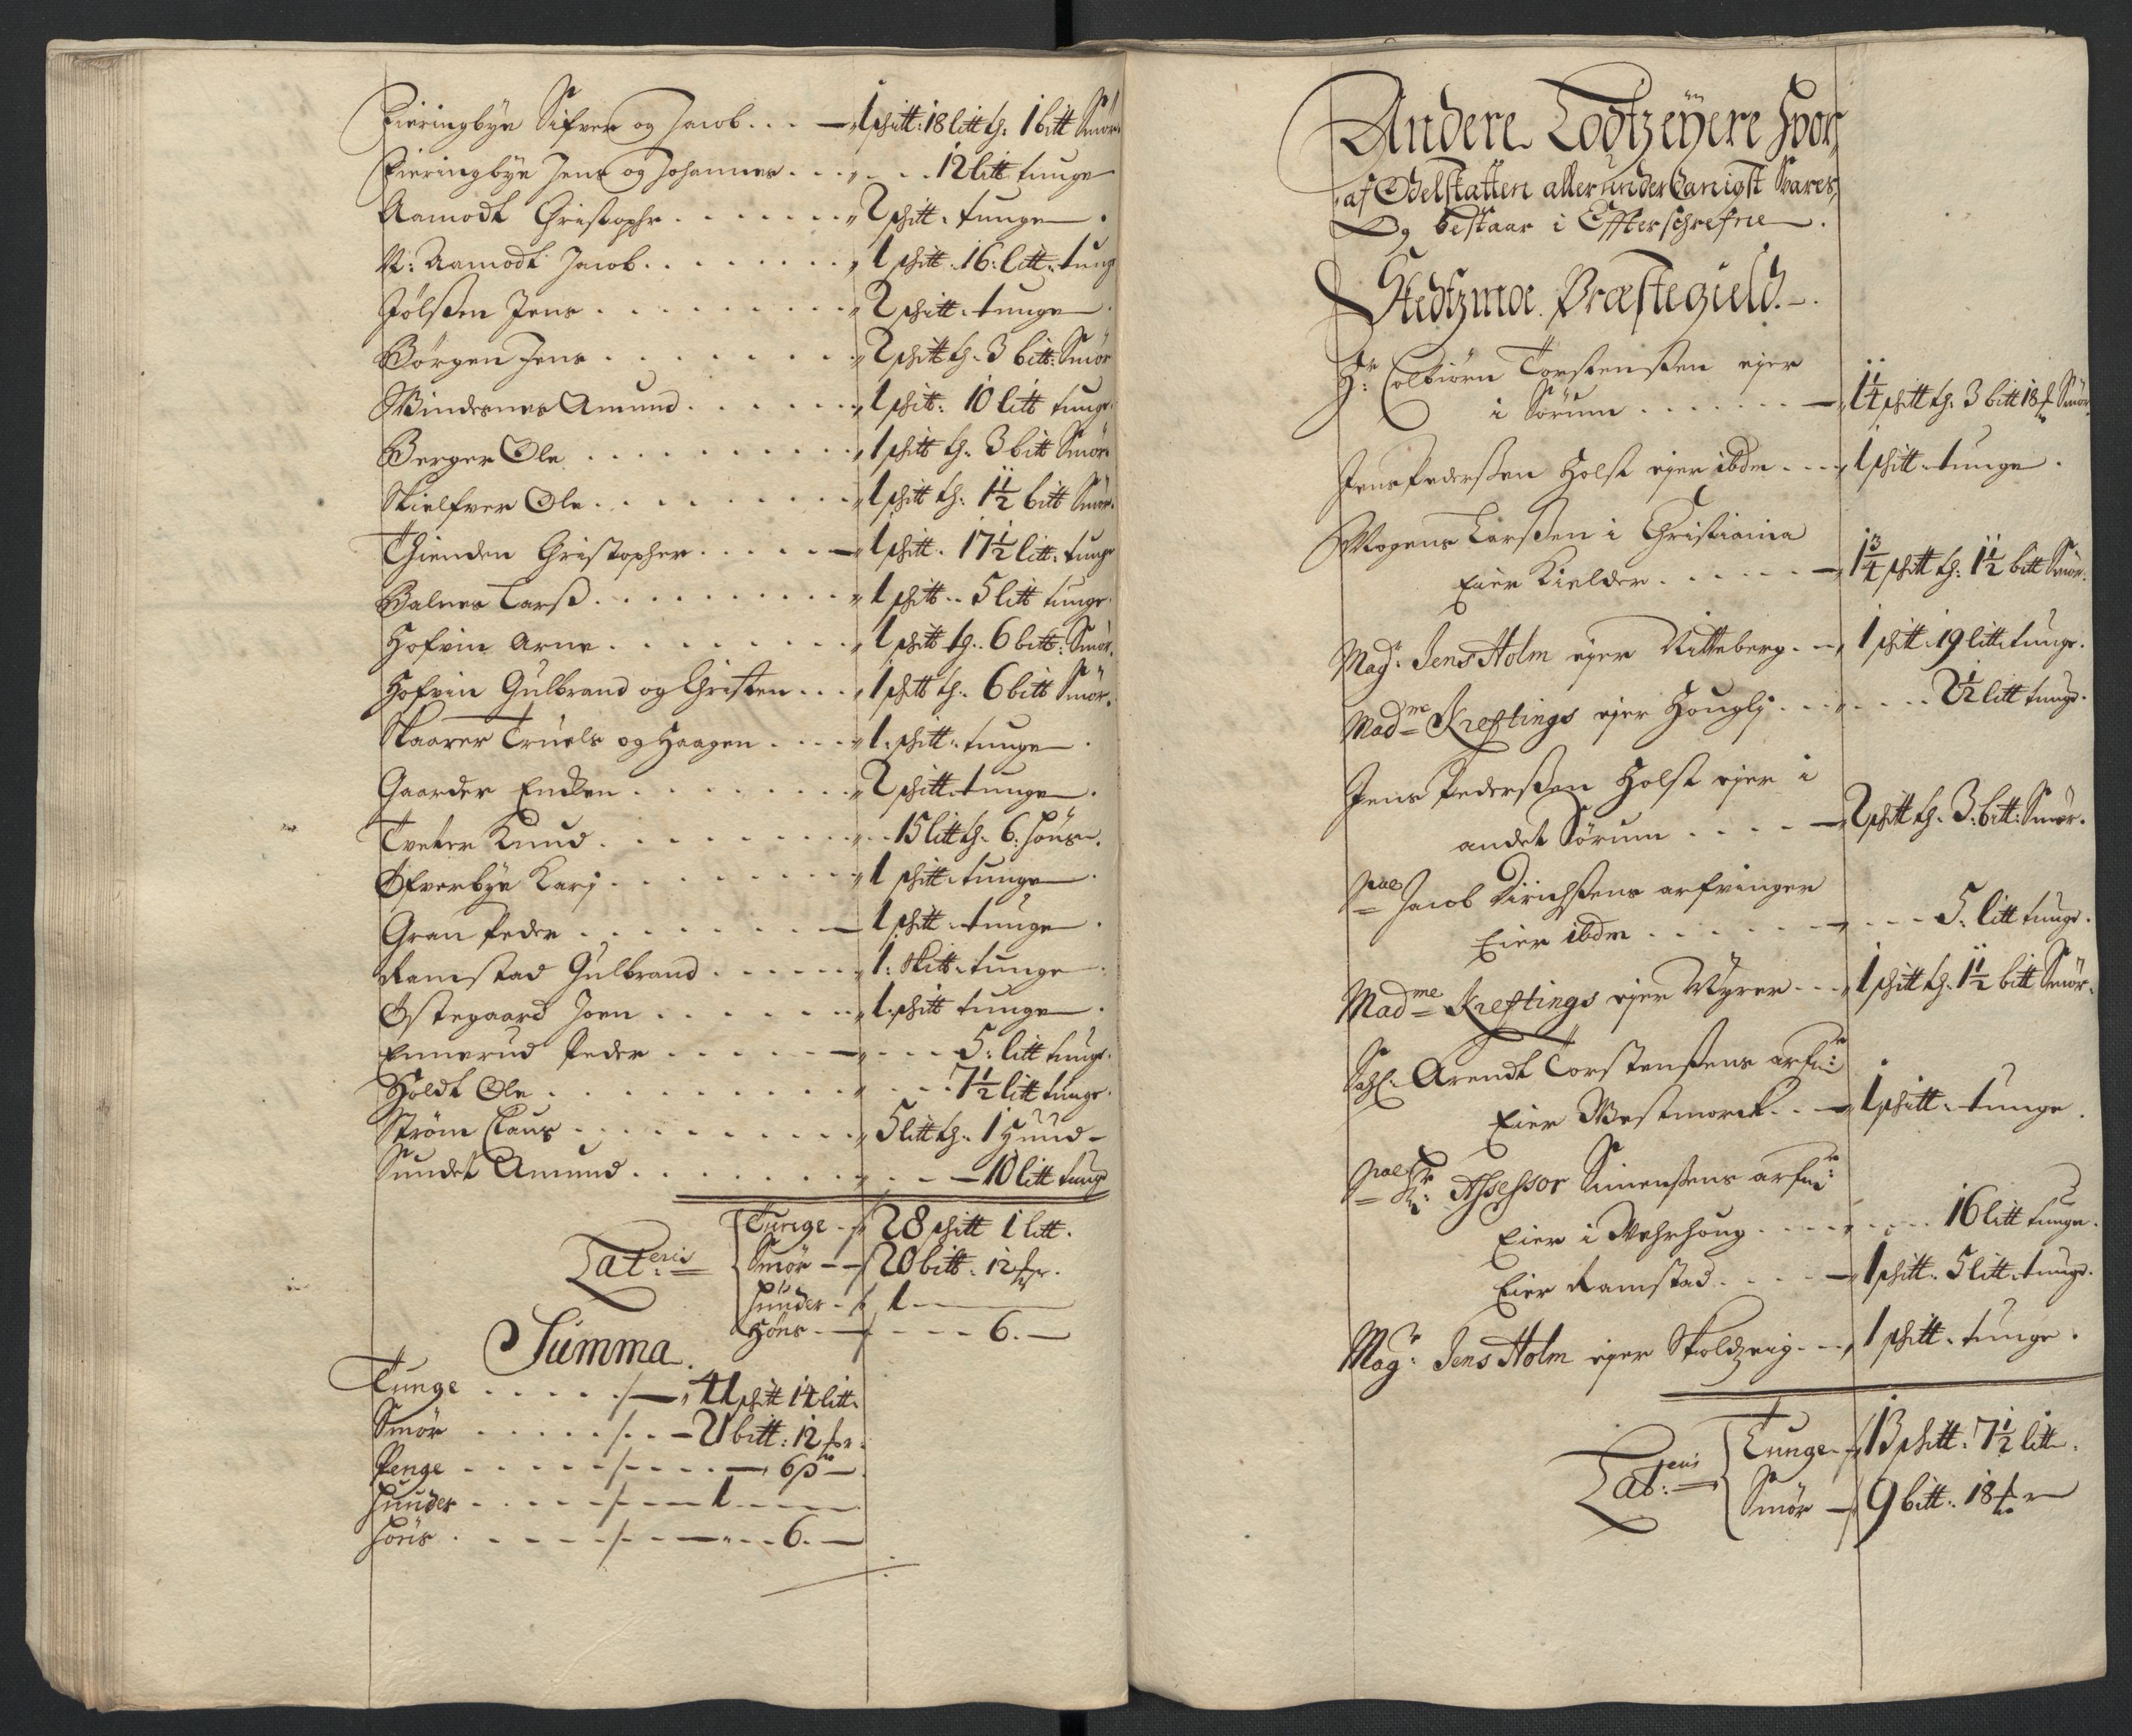 Fieringbye Sifver og Jacob . . . 1 schitt: 18 litt th: 1 bitt Smør
Fieringbye Jens og Johannes . . . 12 litt tunge
Aamodt Christophr . . . 2 schitt: tunge
N: Aamodt Jacob . . . 1 schitt: 16: litt: tunge
Jølssen Jens . . . 2 schitt: tunge
Børgen Jens . . . 2 schitt th: 3 bitt: Smør
Windernes Amund . . . 1 schitt: 10 litt tunge
Berger Ole . . . 1 schitt th: 3 bitt Smør
Skielfver Ole . . . 1 schitt th: 1½ bitt Smør
Thienden Christopher . . . 1 schitt: 17½ litt: tunge
Balnes Larss . . . 1 schitt: 5 litt tunge
Hofvin Arne . . . 1 schitt th: 6 bitt: Smør
Hofvin Gulbrand og Christen . . . 1 schitt th: 6 bitt Smør
Skaarer Truels og Haagen . . . 1: schitt: tunge
Gaarder Encken . . . 2 schitt: tunge
Tveter Knud . . . 15 litt th: 6: Høns
Ofverbye Karj . . . 1 schitt: tunge
Gran Peder . . . 1 schitt: tunge
Ramstad Gulbrand . . . 1: schitt: tunge
Østegaard Joen . . . 1: schitt tunge
Ennerud Peder . . . 5: litt tunge
Holdt Ole . . . 7½ litt tunge
Strøm Claus . . . 5 litt th: 1 Hund
Sundet Amund . . . 10 litt tunge
Lat:eris
Tunge 28 schitt 1 litt.
Smør 20 bitt: 12 mr
Hunder 1
Høns 6.
Summa
Tunge . . . 41 schitt 14 litt
Smør . . . 21 bitt: 12 mr
Penge . . . 6 ß
Hunder . . . 1
Høns . . . 6.
Andere Lodtzeyere Hvor,
af Odelskatten allerunderdanigst Svares,
Og bestaar i Effterschrefne.
Skedtzmoe Præstegield.
Hr: Colbiørn Torstenssen ejer
i Sørum . . . 1¼ schitt th: 3 bitt 18 mr Smør
Jens Pederssen Holst ejer ibdm . . . 1 schitt: tunge
Mogens Larssen i Christiania
Eier Kielder . . . 1¾ schitt th: 1½ bitt Smør
Magr: Jens Holm ejer Nitteberg . . . 1 schitt: 19 litt tunge
Madme Kreftings ejer Houglj . . . 2½ litt tunge
Jens Pederssen Holst ejer i
andet Sørum . . . 2 schitt th: 3: bitt: Smør
Sal Jacob Dirichssens arfvinger
Eier ibdm . . . 5: litt tunge
Madme Kreftings ejer Myrer . . . 1 schitt th: 1½ bitt Smør
Sahl: Arendt Torstenssens arf:
Eier Westmorck . . . 1 schitt: tunge
Sal Hr: Assessor Simenssens arf:
Eier i Wehrhoug . . . 16 litt tunge
Eier Ramstad . . . 1 schitt: 5 litt: tunge
Magr: Jens Holm ejer Skoldzeig . . . 1 schitt: tunge
Lat:eris
Tunge 13 schitt: 7½ litt
Smør 9 bitt: 18 mr